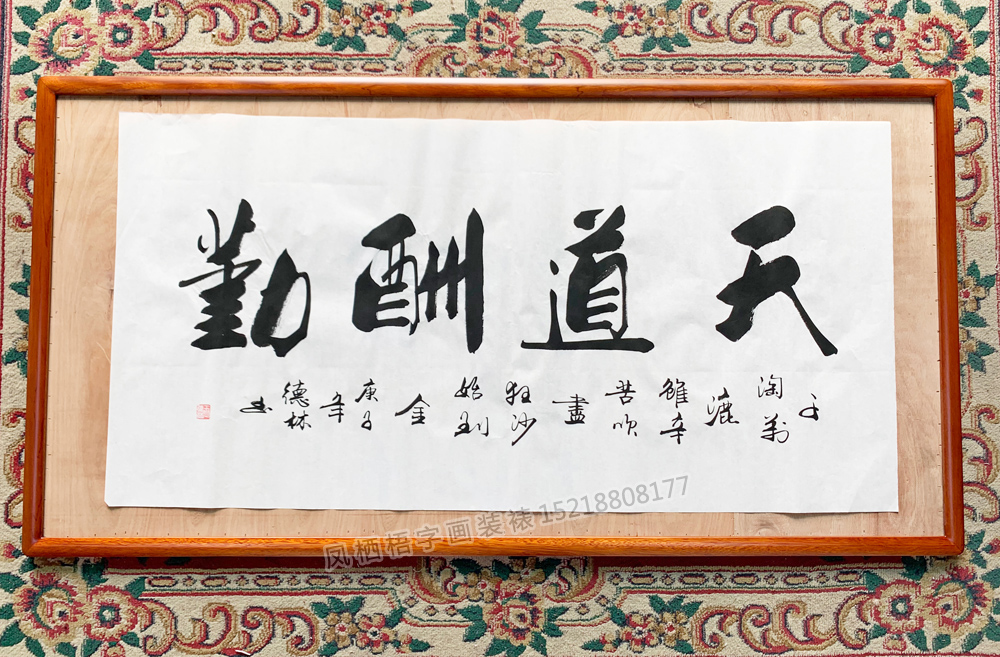 天道酬勤
千淘萬漉雖辛苦吹盡狂沙始到金庚子年德林书
凤栖梧字画装裱15218808177